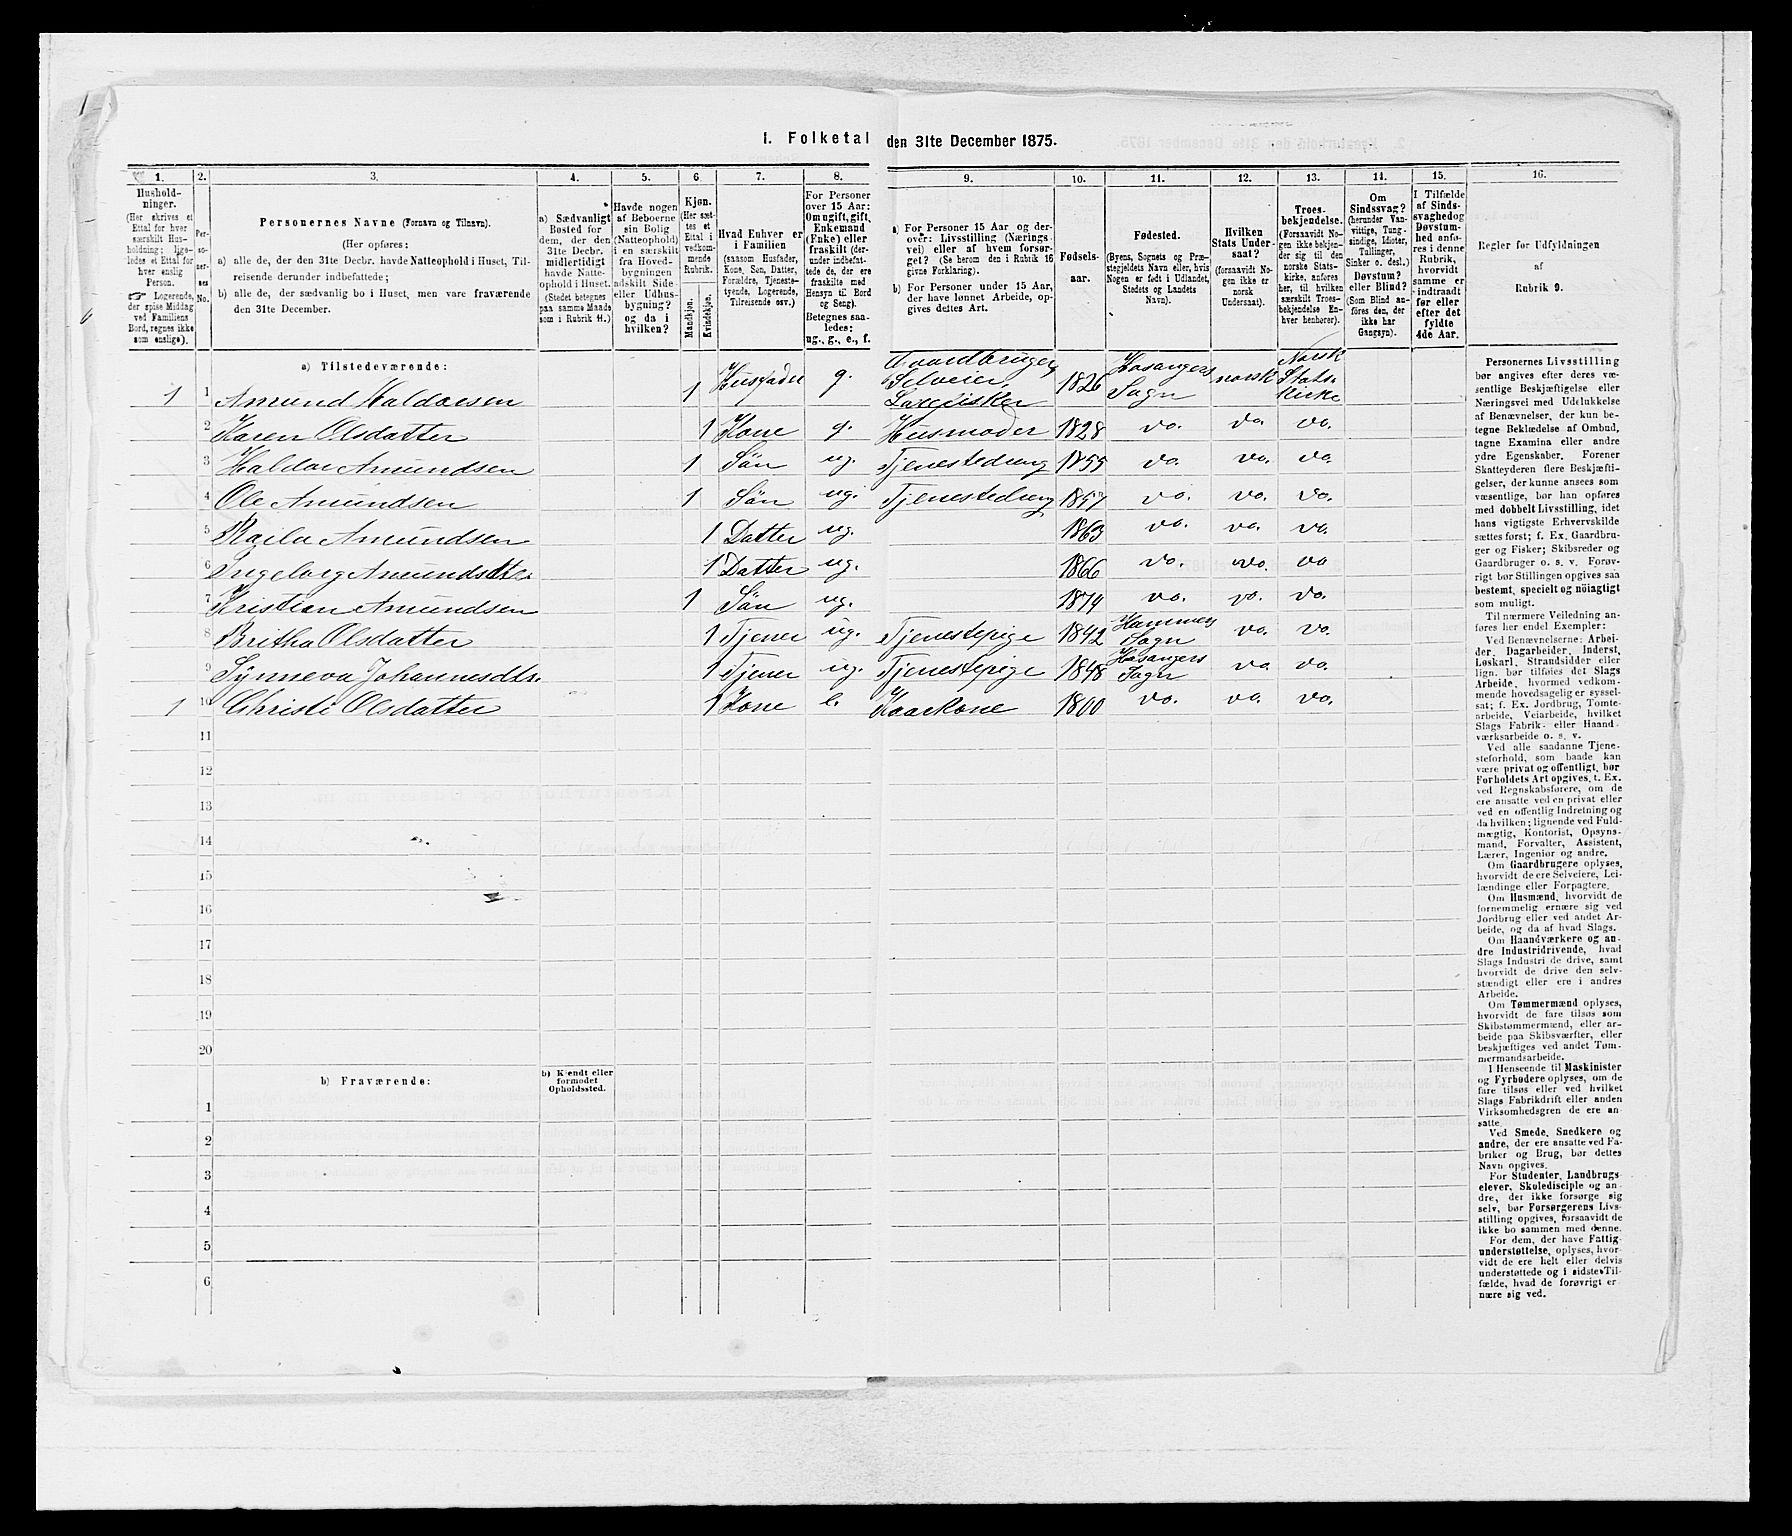 1. Folketal den 31te December 1875.
1. 2. 3. 4. 5. 6. 7. 8. 9. 10. 11. 12. 13. 14. 15. 16.
Hushold-
ninger.
(Her skrives et
Ettal for hver
særskilt Hus-
holdning; lige-
ledes et Ettal for
hver enslig
Person.
☞ Logerende,
der spise Middag
ved Familiens
Bord, regnes ikke
som enslige).
Per-
so-
ner-
nes
No.
Personernes Navne (Fornavn og Tilnavn).
(Her opføres:
a) alle de, der den 31te Decbr. havde Natteophold i Huset, Til-
reisende derunder indbefattede;
b) alle de, der sædvanlig bo i Huset, men vare fraværende
den 31te December.
a) Sædvanligt
Bosted for
dem, der den
31te Decbr.
midlertidigt
havde Natte-
ophold i Huset.
(Stedet betegnes
paa samme Maade
som i Rubrik 11.)
Havde nogen
af Beboerne
sin Bolig
(Natteophold)
i en særskilt
fra Hoved-
bygningen
adskilt Side-
eller Udhus-
bygning?
og da i
hvilken?
Kjøn.
(Her sæt-
tes et
Ettal i
vedkom-
mende
Rubrik.
Mandkjøn.
Kvindekjøn.
Hvad Enhver er
i Familien
(saasom Husfader,
Kone, Søn, Datter,
Forældre, Tjeneste-
tyende, Logerende,
Tilreisende osv.)
For Personer
over 15 Aar:
Om ugift, gift,
Enkemand
(Enke) eller
fraskilt (der-
under indbefat-
tede de, der ere
fraskilte med
Hensyn til Bord
og Seng).
Betegnes saa-
ledes:
ug., g., e., f.
a) For Personer 15 Aar og der-
over: Livsstilling (Nærings-
vei) eller af hvem forsør-
get? (Se herom den i Rubrik 16
givne Forklaring).
b) For Personer under 15 Aar,
der have lønnet Arbeide, op-
gives dettes Art.
Fødsels-
aar.
Fødested.
(Byens, Sognets og Præ-
stegjeldets Navn eller, hvis
Nogen er født i Udlandet,
Stedets og Landets
Navn).
Hvilken
Stats Under-
saat?
(forsaavidt No-
gen ikke er
norsk
Undersaat).
Troes-
bekjendelse.
(Forsaavidt No-
gen ikke bekjen-
der sig til den
norske Stats-
kirke, anføres
her, til hvilken
særskilt Troes-
bekjendelse En-
hver henhører).
Om
Sindssvag?
(herunder Van-
vittige, Tung-
sindige, Idioter,
Tullinger,
Sinker o. desl.)
Døvstum?
eller Blind?
(Som Blind an-
føres den, der
ikke har
Gangsyn).
I Tilfælde
af Sinds-
svaghed og
Døvstum-
hed anfø-
res i denne
Rubrik,
hvorvidt
samme er
indtraadt
før eller
efter det
fyldte
4de Aar.
Regler for Udfyldningen
af
Rubrik 9.
a) Tilstedeværende:
1 1 Amund Haldorsen 1 Husfader g. Gaardbruger, Selveier, Laxefisker 1826 Hosangers Sogn norsk Norsk Stats- Kirke
2 Karen Olsdatter 1 Kone g. Husmoder 1828 do. do. do.
3 Haldor Amundsen 1 Søn ug. Tjenestedreng 1855 do. do. do.
4 Ole Amundsen 1 Søn ug. Tjenestedreng 1857 do. do. do.
5 Amundsen 1 Datter ug. 1863 do. do. do.
6 Ingeborg Amundsdtr. 1 Datter ug. 1866 do. do. do
7 Kristian Amundsen 1 Søn ug. 1874 do. do. do.
8 Britha Olsdatter 1 Tjener ug. Tjenestepige 1842 Hammers Sogn do. do.
9 Synneva Johannesdtr. 1 Tjener ug. Tjenestepige 1848 Hosangers Sogn do do.
1 10 Christi Olsdatter 1 Kone e. Kaarkone 1800 do. do. do.
11
12
13
14
15
16
17
18
19
20
b) Fraværende:
b) Kjendt eller
formodet
Opholdssted.
1
2
3
4
5
6
Personernes Livsstilling
bør angives efter deres væ-
sentlige Beskjæftigelse eller
Næringsvei med Udelukkelse
af Benævnelser, der kun be-
tegne Beklædelse af Ombud,
tagne Examina eller andre
ydre Egenskaber. Forener
Skatteyderen flere Beskjæfti-
gelser, der kunne ansees som
væsentlige, bør han opføres
med dobbelt Livsstilling, idet
hans vigtigste Erhvervskilde
sættes først; f. Ex. Gaardbru-
ger og Fisker; Skibsreder og
Gaardbruger o. s. v. Forøv-
rigt bør Stillingen opgives saa
bestemt, specielt og nøiagtigt
som muligt.
Til nærmere Veiledning an-
føres her endel Exempler:
Ved Benævnelserne: Arbei-
der, Dagarbeider, Inderst,
Løskarl, Strandsidder eller
lign. bør tilføies det Slags
Arbeide, hvormed vedkom-
mende hovedsagelig er syssel-
sat; f. Ex. Jordbrug, Tomte-
arbeide, Veiarbeide, hvilket
Slags Fabrik- eller Haand-
værksarbeide o. s. v.
Ved alle saadanne Tjene-
steforhold, som baade kan
være privat og offentligt, bør
Forholdets Art opgives, f. Ex.
ved Regnskabsførere, om de
ere ansatte ved en privat eller
ved en offentlig Indretning og
da hvilken; lignende ved Fuld-
mægtig, Kontorist, Opsyns-
mand, Forvalter, Assistent,
Lærer, Ingeniør og andre.
Om Gaardbrugere oplyses,
hvorvidt de ere Selveiere, Lei-
lændinge eller Forpagtere.
Om Husmænd, hvorvidt de
fornemmelig ernære sig ved
Jordbrug eller ved andet Ar-
beide, og da af hvad Slags.
Om Haandværkere og an-
dre Industridrivende, hvad
Slags Industri de drive, samt
hvorvidt de drive den selv-
stændigt eller ere i andres
Arbeide.
Om Tømmermænd oplyses,
hvorvidt de fare tilsøs som
Skibstømmermænd, eller ar-
beide paa Skibsværfter, eller
beskjæftiges ved andet Tøm-
mermandsarbeide.
I Henseende til Maskinister
og Fyrbødere oplyses, om de
fare tilsøs eller ved hvilket
Slags Fabrikdrift eller anden
Virksomhedsgren de ere an-
satte.
Ved Smede, Snedkere og
andre, der ere ansatte ved Fa-
briker og Brug, bør dettes
Navn opgives.
For Studenter, Landbrugs-
elever, Skoledisciple og an-
dre, der ikke forsørge sig
selv, bør Forsørgerens Livs-
stilling opgives, forsaavidt de
ikke bo sammen med denne.
For dem, der have Fattig-
understøttelse, oplyses, hvor-
vidt de ere helt eller delvis
understøttede og i sidste Til-
fælde, hvad de forøvrigt er-
nære sig ved.